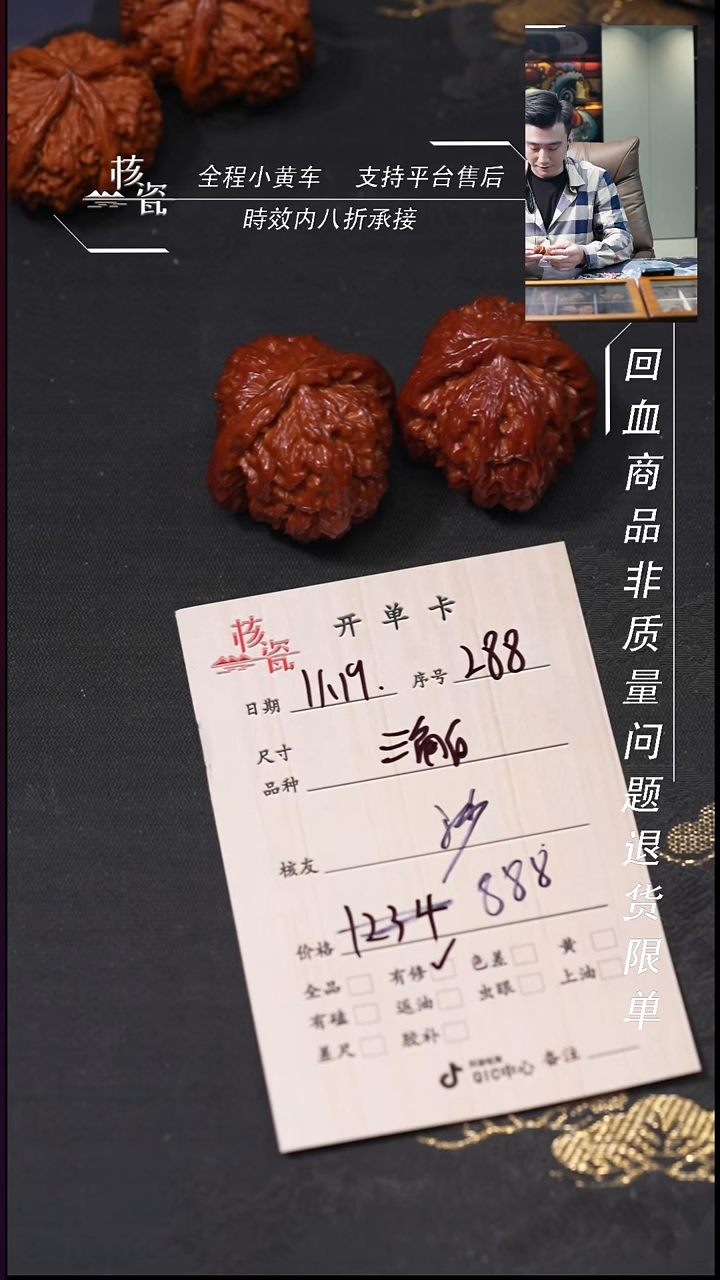 核瓷
全程小黄车 支持平台售后
時效内八折承接
回血商品非质量问题退货限单
核瓷
开单卡
日期 11.19. 序号 288
尺寸
品种
核友
价格 1234 888
全品 有修 ✓ 色差 黄
有磕 返油 虫眼 上油
差尺 胶补
QIC中心 备注